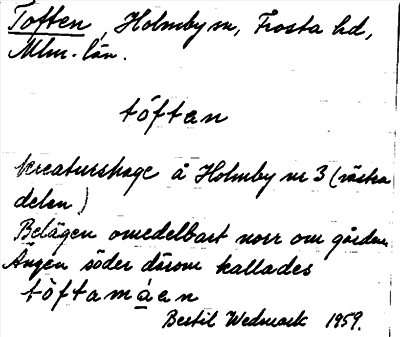 Toften, Holmby sn, Frosta hd,
Mlm. län.
tóftan
kreaturshage å Holmby nr 3 (västra
delen)
Belägen omedelbart norr om gården.
Ängen söder därom kallades
tòftamáen
Bertil Wedmark 1959.